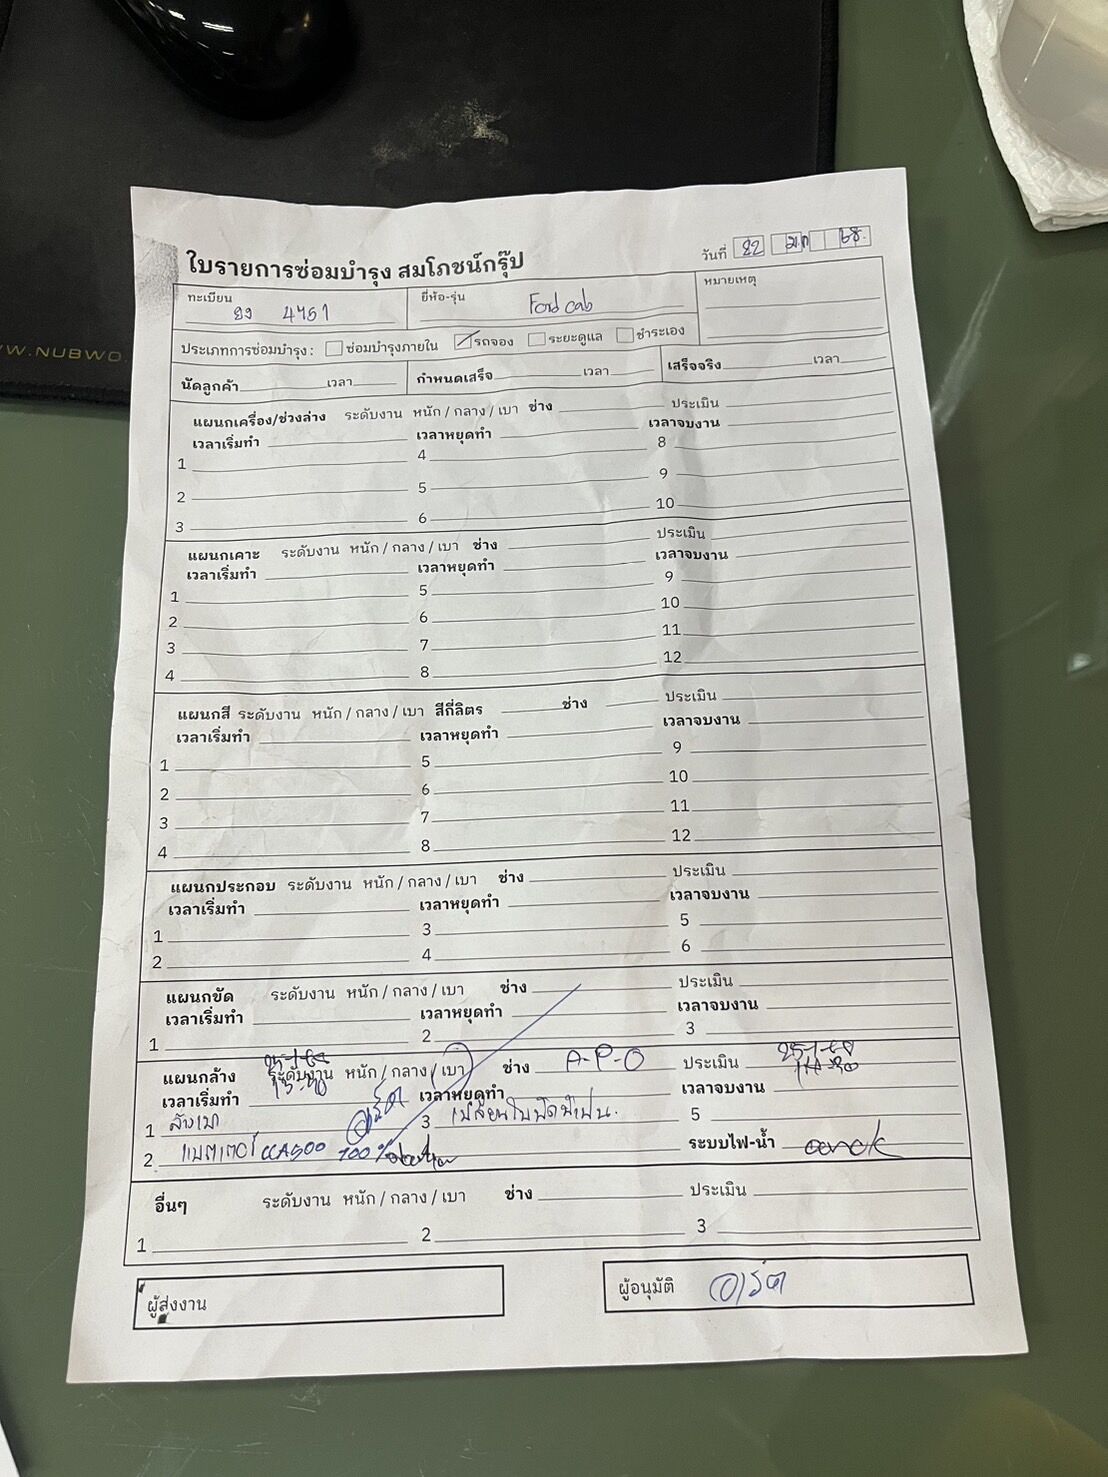 WWW.NUBWO.
ใบรายการซ่อมบำรุง สมโภชน์กรุ๊ป
วันที่ 22 ม.ค 68
ทะเบียน 4751
ยี่ห้อ-รุ่น Ford cab
หมายเหตุ
ประเภทการซ่อมบำรุง : ซ่อมบำรุงภายใน รถจอง ระยะดูแล ชำระเอง
นัดลูกค้า เวลา กำหนดเสร็จ เวลา เสร็จจริง เวลา
แผนกเครื่อง/ช่วงล่าง ระดับงาน หนัก / กลาง / เบา ช่าง ประเมิน
เวลาเริ่มทำ เวลาหยุดทำ เวลาจบงาน
1 4 8
2 5 9
3 6 10
แผนกเคาะ ระดับงาน หนัก / กลาง / เบา ช่าง ประเมิน
เวลาเริ่มทำ เวลาหยุดทำ เวลาจบงาน
1 5 9
2 6 10
3 7 11
4 8 12
แผนกสี ระดับงาน หนัก / กลาง / เบา สีกี่ลิตร ช่าง ประเมิน
เวลาเริ่มทำ เวลาหยุดทำ เวลาจบงาน
1 5 9
2 6 10
3 7 11
4 8 12
แผนกประกอบ ระดับงาน หนัก / กลาง / เบา ช่าง ประเมิน
เวลาเริ่มทำ เวลาหยุดทำ เวลาจบงาน
1 3 5
2 4 6
แผนกขัด ระดับงาน หนัก / กลาง / เบา ช่าง ประเมิน
เวลาเริ่มทำ เวลาหยุดทำ เวลาจบงาน
1 2 3
แผนกล้าง ระดับงาน หนัก / กลาง / เบา ช่าง A-P-O ประเมิน
เวลาเริ่มทำ เวลาหยุดทำ เวลาจบงาน
1 ล้างเบา 3 เปลี่ยนใบปัดน้ำฝน. 5
2 แบตเตอรี่ CCA500 100% 4 ระบบไฟ-น้ำ
อื่นๆ ระดับงาน หนัก / กลาง / เบา ช่าง ประเมิน
1 2 3
ผู้ส่งงาน
ผู้อนุมัติ อาร์ต